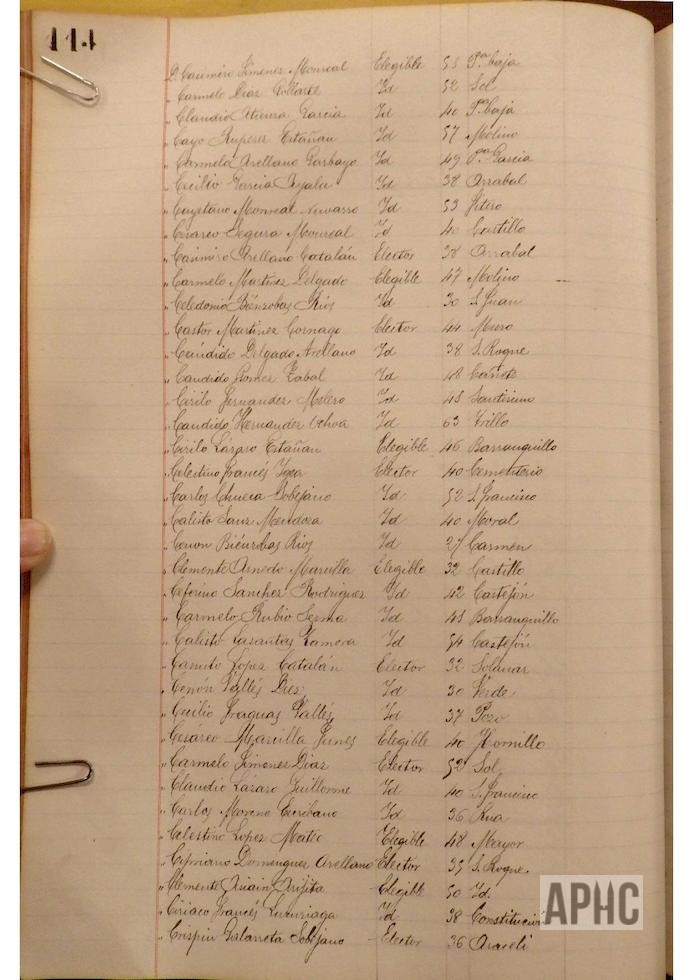 114
D. Casimiro Jimenez Monreal Elegible 51 Pª baja
" Carmelo Diaz Id 52 Sol
" Claudio Garcia Id 40 Pª baja
" Cayo Ruperez Estañan Id 57 Molino
" Carmelo Arellano Garbayo Id 49 Pª Garcia
" Cecilio Garcia Ayala Id 38 Arrabal
" Cayetano Monreal Navarro Id 53 Fitero
" Cesareo Segura Monreal Id 40 Castillo
" Casimiro Arellano Catalán Elector 38 Arrabal
" Carmelo Martinez Delgado Elegible 47 Molino
" Celedonio Biénzobas Rios Id 30 S. Juan
" Castor Martinez Gornago Elector 44 Muro
" Cándido Delgado Arellano Id 38 S. Roque
" Candido Gomez Id 48 Cañete
" Cirilo Fernandez Melero Id 45
" Candido Hernandez Ochoa Id 63 Trillo
" Cirilo Lázaro Estañan Elegible 46 Barranquillo
" Celestino Francés Elector 40 Cementerio
" Carlos Chueca Sobejano Id 52 S. Francisco
" Calisto Sanz Mendoza Id 40 Moral
" Cenon Biénzobas Rios Id 27 Carmen
" Clemente Arnedo Marcilla Elegible 32 Castillo
" Ceferino Sanchez Rodriguez Id 42 Castejón
" Carmelo Rubio Serma Id 45 Barranquillo
" Calisto Lasantas Zamora Id 54 Castejón
" Camilo Lopez Catalán Elector 32 Solanar
" Cenón Vallés Diez Id 30 Verde
" Cecilio Fraguas Vallés Id 37 Pozo
" Cesáreo Marcilla Elegible 40 Hornillo
" Carmelo Jimenez Diaz Elector 52 Sol
" Claudio Lázaro Guillorme Id 40 S. Francisco
" Carlos Moreno Escribano Id 36 Rua
" Celestino Lopez Mateo Elegible 48 Mayor
" Cipriano Dominguez Arellano Elector 35 S. Roque
" Clemente Elegible 50 Id.
" Ciriaco Francés Luzuriaga Id 38 Constitución
" Crispin Galarreta Sobejano Elector 36 Araceli
APHC